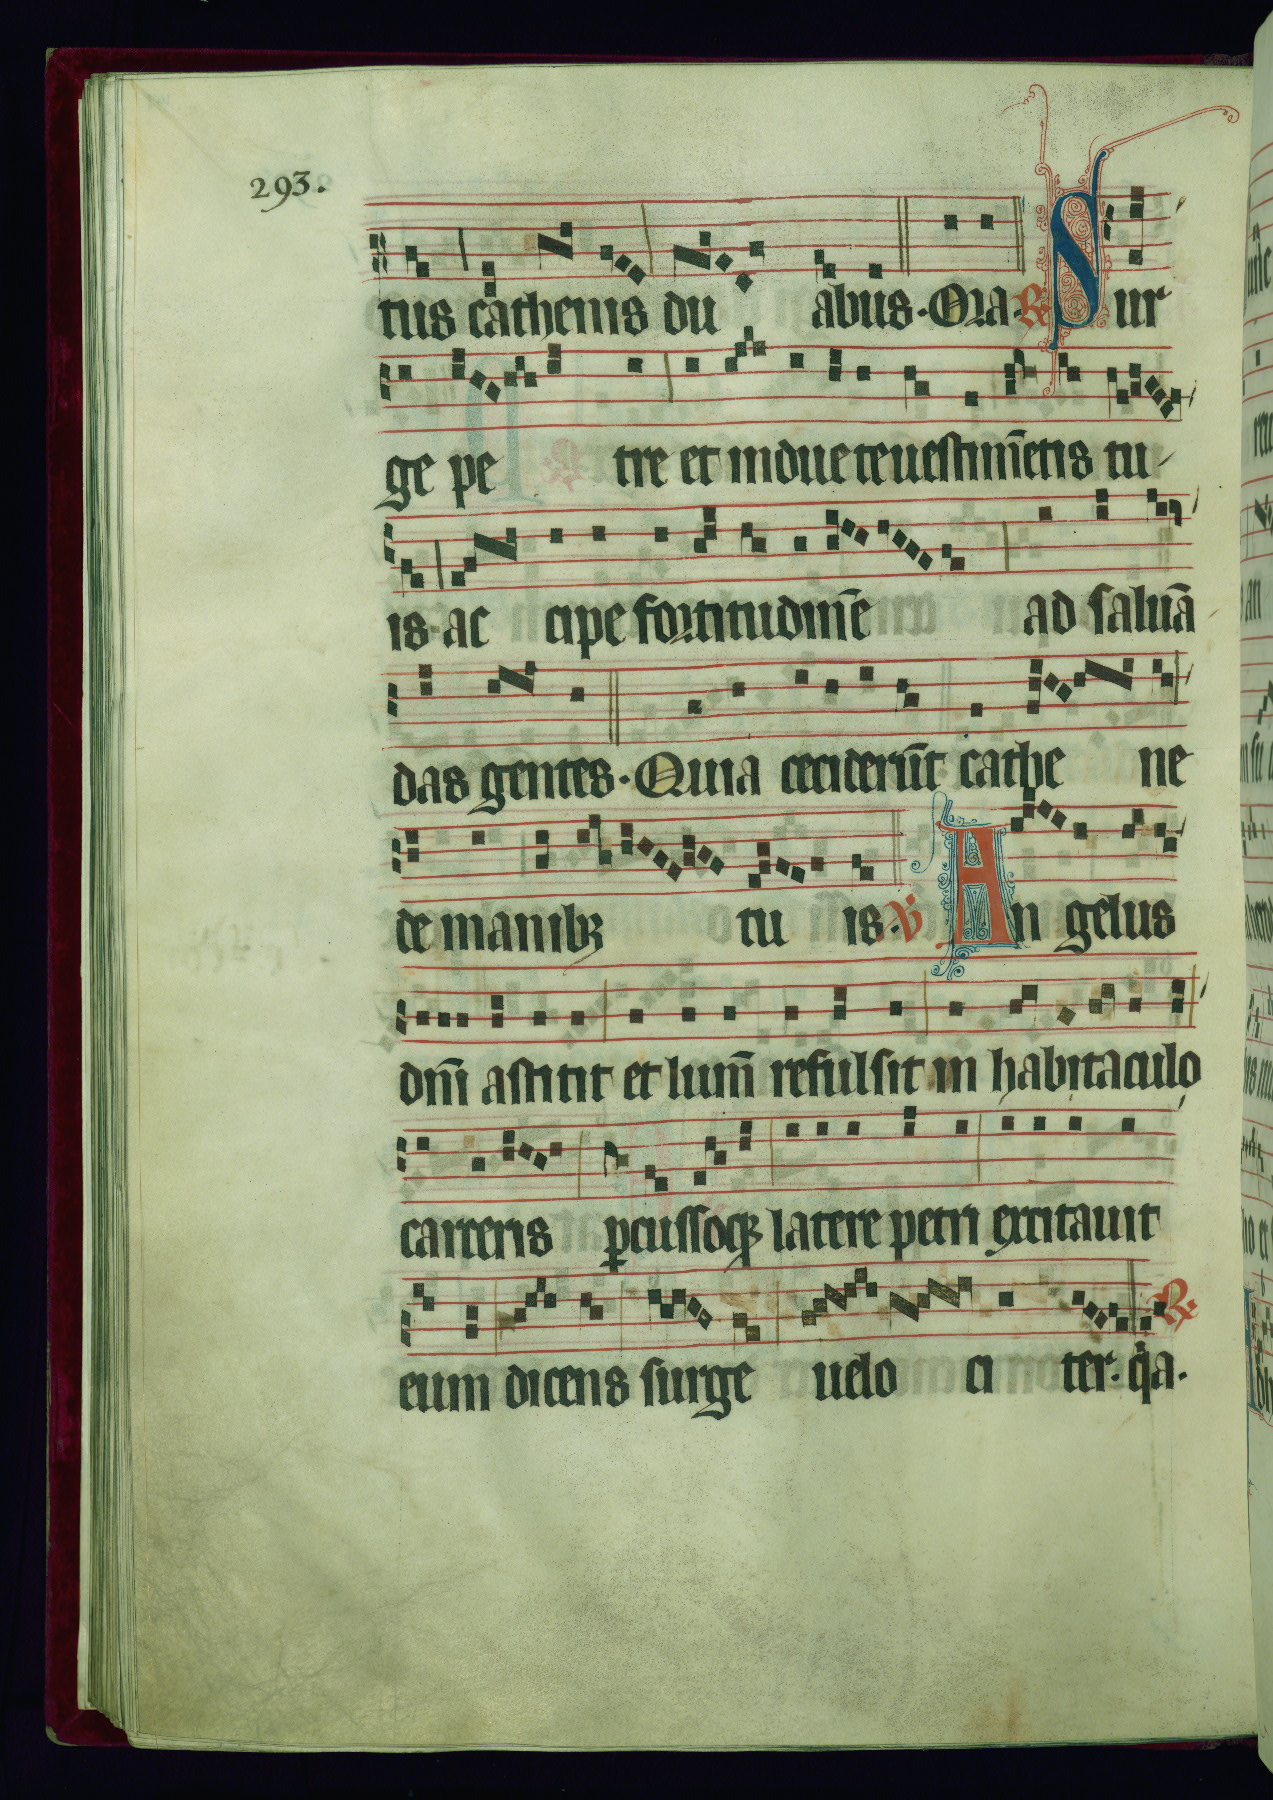 293.
tus cathenis du abus. Ora. R Sur
ge pe tre et indue te uestim̄etis tu
is. ac cipe fortitudinē ad saluā
das gentes. Quia cecideru̅t cathe ne
de manibꝫ tu is. V An gelus
dn̅i astitit et lum̅ refulsit in habitaculo
carceris ꝑcussoqꝫ latere petri excitauit
eum dicens surge uelo ci ter. qia. R.